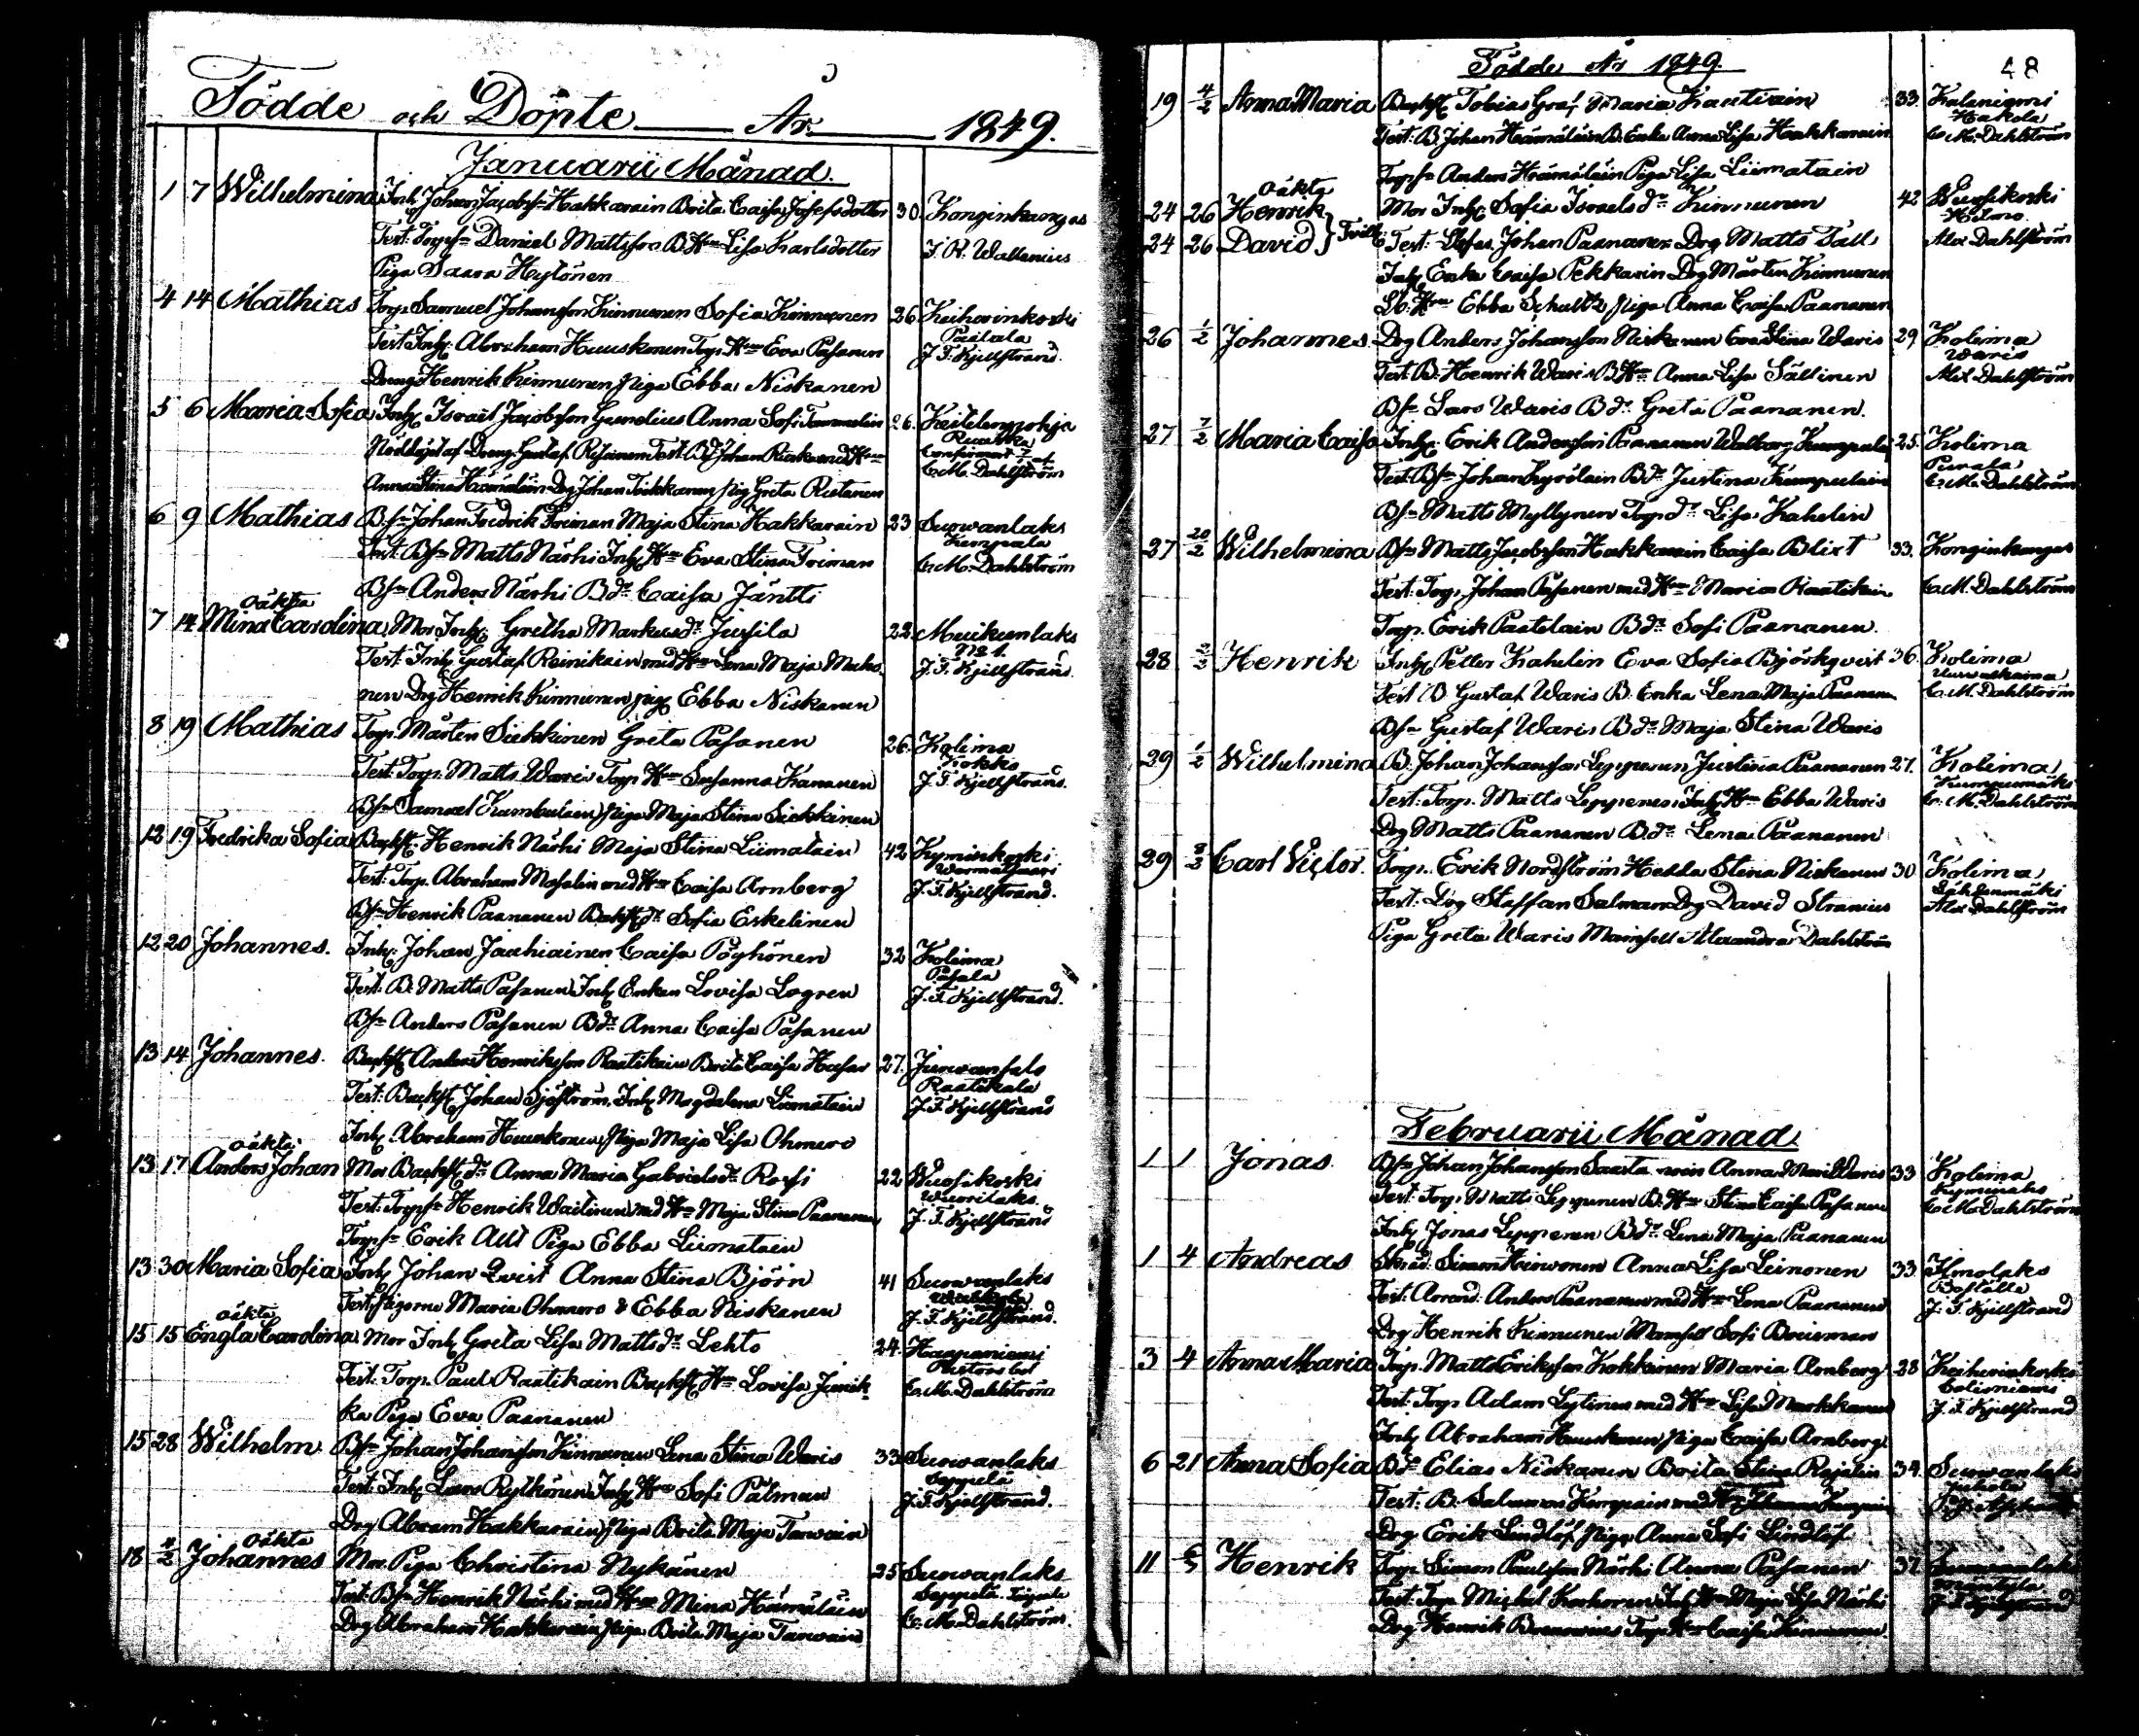 Födde och Döpte År 1849.
Januarii Månad.
1 7 Wilhelmina Inh. Johan Jacobss: Hakkarain Brita Caisa Josefsdotter 30. Konginkangas
Test: Torpss: Daniel Mattsson B. Hn Lisa Karlsdotter J. R. Wallenius
Piga Saara Hytönen
4 14 Mathias Torp. Samuel Johansson Kinnunen Sofia Kinnunen 26 Keihärinkoski
Test: Inh. Abraham Huuskonen Torp. Hn Eva Pasanen Paatala
Dreng Henrik Kinnunen piga Ebba Niskanen J. F. Kjellstrand.
5 6 Maria Sofia Inh. Israel Jacobsson Gunelius Anna Sofi Tammelin 26. Keitelenpohja
Nöddöpt af Dreng Gustaf
Anna Stina Hämäläin Drg Johan piga Greta C. M. Dahlström
6 9 Mathias B.sn Johan Fredrik Friman Maja Stina Hakkarain 23 Suowanlaks
Test: Bsn Matts Närhi Inh. Hn Eva Stina Friman Kumpala
Bsn Anders Närhi Bdr Caisa Jäntti C. M. Dahlström
oäkta
7 14 Mina Carolina Mor Inh. Gretha Markusdr Jussila 22 Muikunlaks
Test: Inh. Gustaf Reinikain med Hn Lena Maja No 1.
nen Drg Henrik Kinnunen piga Ebba Niskanen J. F. Kjellstrand.
8 19 Mathias Torp. Mårten Siekkinen Greta Pasanen 26. Kolima
Test: Torp. Matts Waris Torp. Hn Susanna Kananen Kokko
Bsn Samuel Kumbulain piga Maja Stina Siekkinen J. F. Kjellstrand.
12 19 Fredrika Sofia Backst. Henrik Närhi Maja Stina Liimatain 42 Kyminkoski
Test: Torp. Abraham Masalin med Hn Caisa Arnberg
Bsn Henrik Paananen Backst. dr Sofia Eskelinen J. F. Kjellstrand.
12 20 Johannes. Inh. Johan Jauhiainen Caisa Pöyhönen 32 Kolima
Test: B. Matts Pasanen Inh. Enkan Lovisa Logren Pasala
Bsn Anders Pasanen Bdr Anna Caisa Pasanen J. F. Kjellstrand.
13 14 Johannes. Backst. Anders Henriksson Raatikain Brita Caisa 27. Jurwansalo
Test: Backst. Johan Sjöström. Inh. Magdalena Liimatain Raatikala
Inh. Abraham Huuskonen Piga Maja Lisa Ohmero J. F. Kjellstrand
oäkta
13 17 Anders Johan Mor Backst. dr Anna Maria Gabrielsdr Rossi 22 Wuosikoski
Test: Torpsn Henrik Waitinen med Hn Maja Stina Paananen Wuorilaks.
Torpsn Erik Allt Piga Ebba Liimatain J. F. Kjellstrand
13 30 Maria Sofia Inh. Johan Qvist Anna Stina Björn 41 Suowanlaks
Test: Pigorna Maria Ohmero & Ebba Niskanen J. F. Kjellstrand.
oäkta
15 15 Engla Carolina Mor Inh. Greta Lisa Mattsdr Lehto 24. Haapaniemi
Test: Torp. Paul Raatikain Backst. Hn Lovisa Junik-
ka Piga Eva Paananen C. M. Dahlström
15 28 Wilhelm Bsn Johan Johansson Kinnunen Lena Stina Waris 33 Suowanlaks
Test: Inh. Lars Rytkönen Inh. Hn Sofi Palman Seppälä
Drg Abram Hakkarain piga Brita Maja Tarwain J. F. Kjellstrand.
oäkta
18 4/2 Johannes Mor Piga Christina Nykänen 25 Suowanlaks
Test: Bsn Henrik Närhi med Hn Mina Hämäläin Seppälä
Drg Abraham Hakkarain piga Brita Maja Tarwain C. M. Dahlström.
Födde År 1849. 48
19 4/2 Anna Maria Backst. Tobias Graf Maria Kautiain 33. Kalaniemi
Test: B. Johan Hämäläin B. Enka Anna Lisa Hakkarain Hakola
Torpsn Anders Hämäläin Piga Lisa Liimatain C. M. Dahlström
oäkta
24 26 Henrik Mor Inh. Sofia Israelsdr Kinnunen 42 Wuosikoski
24 26 David } Tvill. Test: Johan Paananen Drg Matts Tall
Inh. Enka Caisa Pekkarin Drg Mårten Kinnunen Alex Dahlström
Hn Ebba Schultz piga Anna Caisa Paananen
26 1/2 Johannes. Drg Anders Johansson Niskanen Eva Stina Waris 29 Kolima
Test: B. Henrik Waris B. Hn Anna Lisa Sällinen Waris
Bsn Lars Waris Bdr Greta Paananen. Alex Dahlström
27 7/2 Maria Caisa Inh. Erik Andersson Paananen Walborg 25. Kolima
Test: Bsn Johan Bdr Justina Kumpulain Purala
Bsn Matts Myllynen Torp. dr Lisa Kahelin C. M. Dahlström
27 20/2 Wilhelmina Bsn Matts Jacobsson Hakkarain Caisa Blixt 33. Konginkangas
Test: Torp. Johan Pasanen med Hn Maria Raatikain C. M. Dahlström
Torp. Erik Paatelain Bdr Sofi Paananen.
28 2/2 Henrik Inh. Petter Kahelin Eva Sofia Björkqvist 36. Kolima
Test: B. Gustaf Waris B. Enka Lena Maja Paananen
Bsn Gustaf Waris Bdr Maja Stina Waris C. M. Dahlström
29 1/2 Wilhelmina B. Johan Johansson Leppenen Justina Paananen 27. Kolima
Test: Torp. Matts Leppenen Inh. Hn Ebba Waris Kumpumäki
Drg Matts Paananen Bdr Lena Paananen C. M. Dahlström
29 8/2 Carl Victor. Torp. Erik Nordström Hedda Stina Niskanen 30 Kolima
Test: Drg Staffan Salman Drg David Stranius
Piga Greta Waris Mamsell Alexandra Dahlström Alex Dahlström
Februarii Månad.
1 1 Jonas. Bsn Johan Johansson Anna Waris 33 Kolima
Test: Torp. Matts Leppenen B. Hn Stina Caisa Pasanen
Inh. Jonas Lepperen Bdr Lena Maja Paananen C. M. Dahlström
1 4 Andreas Simon Anna Lisa Leinonen 33. Ilmolaks
Test: Arrend. Anders Paananen med Hn Lena Paananen
Drg Henrik Kinnunen Mamsell Sofi J. F. Kjellstrand
3 4 Anna Maria Torp. Matts Eriksson Kokkinen Maria Arnberg 28 Keihärinkoski
Test: Torp. Adam Lytinen med Hn Lisa Markkanen
Inh. Abraham Huuskonen piga Caisa Arnberg. J. F. Kjellstrand
6 21 Anna Sofia Elias Niskanen Brita Stina Rajalin 34. Suowanlaks
Test: B. Salomon med Hn Juhola
Drg Erik Lindlöf Piga Anna Sofi Lindlöf
11 Henrik Torp. Simon Paulsson Närhi Anna Pasanen 37. Suowanlaks
Test: Torp. Michel Korhonen Inh. Hn Maja Lisa Närhi Mäntylä
Drg Henrik Torp. Hn Caisa Kinnunen. J. F. Kjellstrand